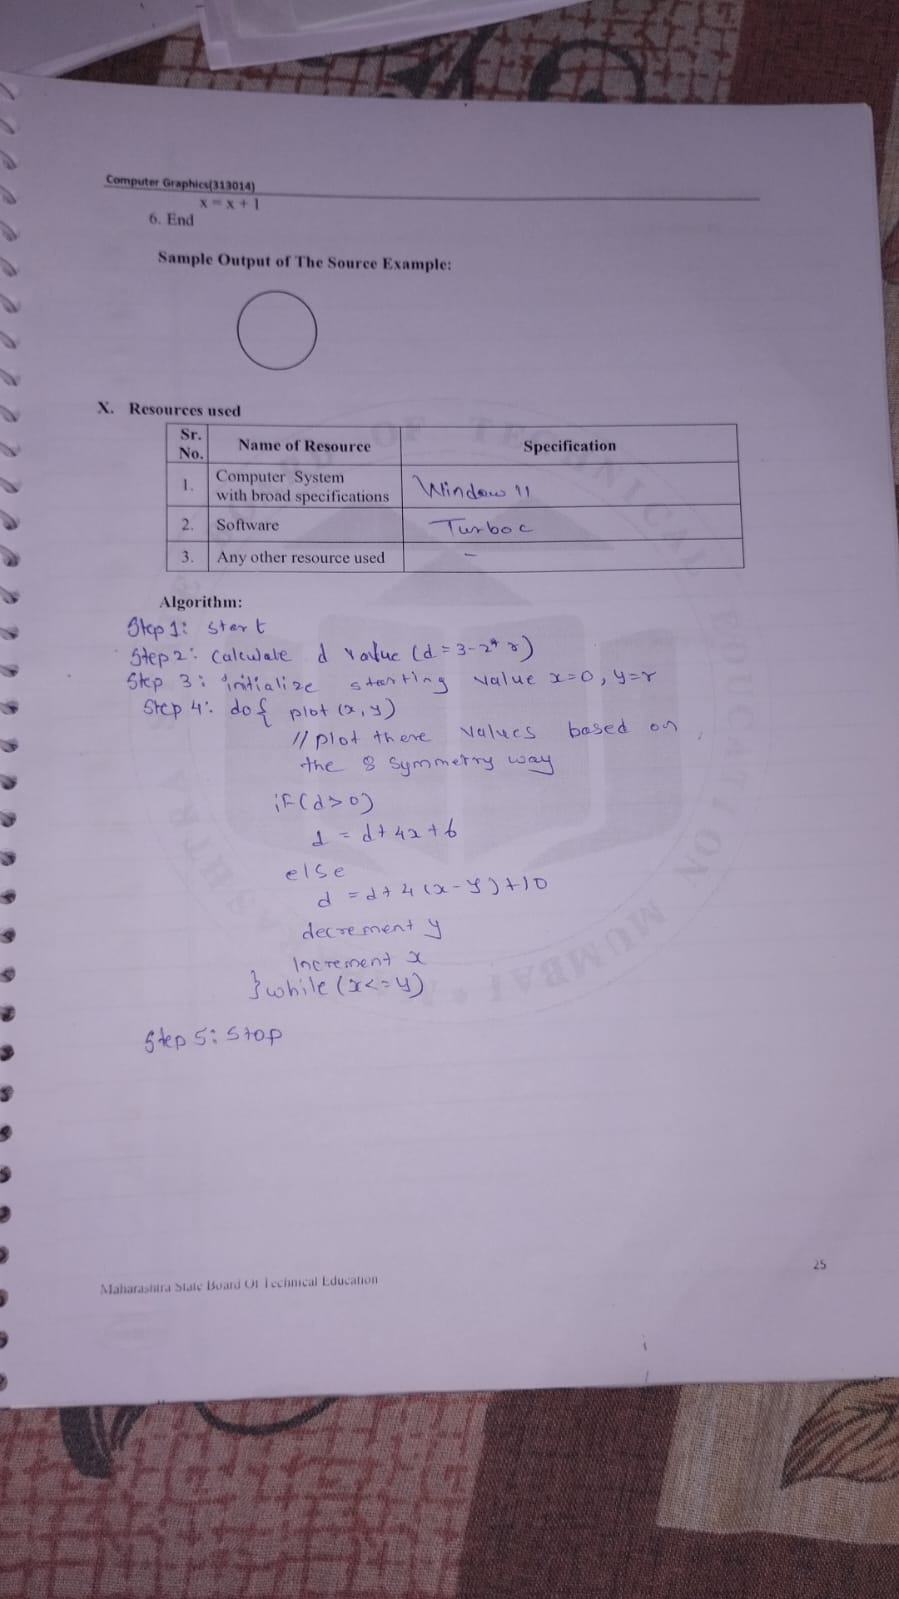 Computer Graphics(313014)
x = x + 1
6. End
Sample Output of The Source Example:
X. Resources used
Sr. No. Name of Resource Specification
1. Computer System with broad specifications Window 11
2. Software Turbo c
3. Any other resource used -
Algorithm:
Step 1: start
Step 2: Calculate d value (d = 3-2* r)
Step 3: initialize starting value x=0, y=r
Step 4: do{ plot (x, y)
// plot there values based on
the 8 symmetry way
if(d>0)
d = d+4x+6
else
d = d+4(x-y)+10
decrement y
Increment x
}while(x<=y)
Step 5: Stop
25
Maharashtra State Board Of Technical Education
BOARD OF TECHNICAL EDUCATION MUMBAI